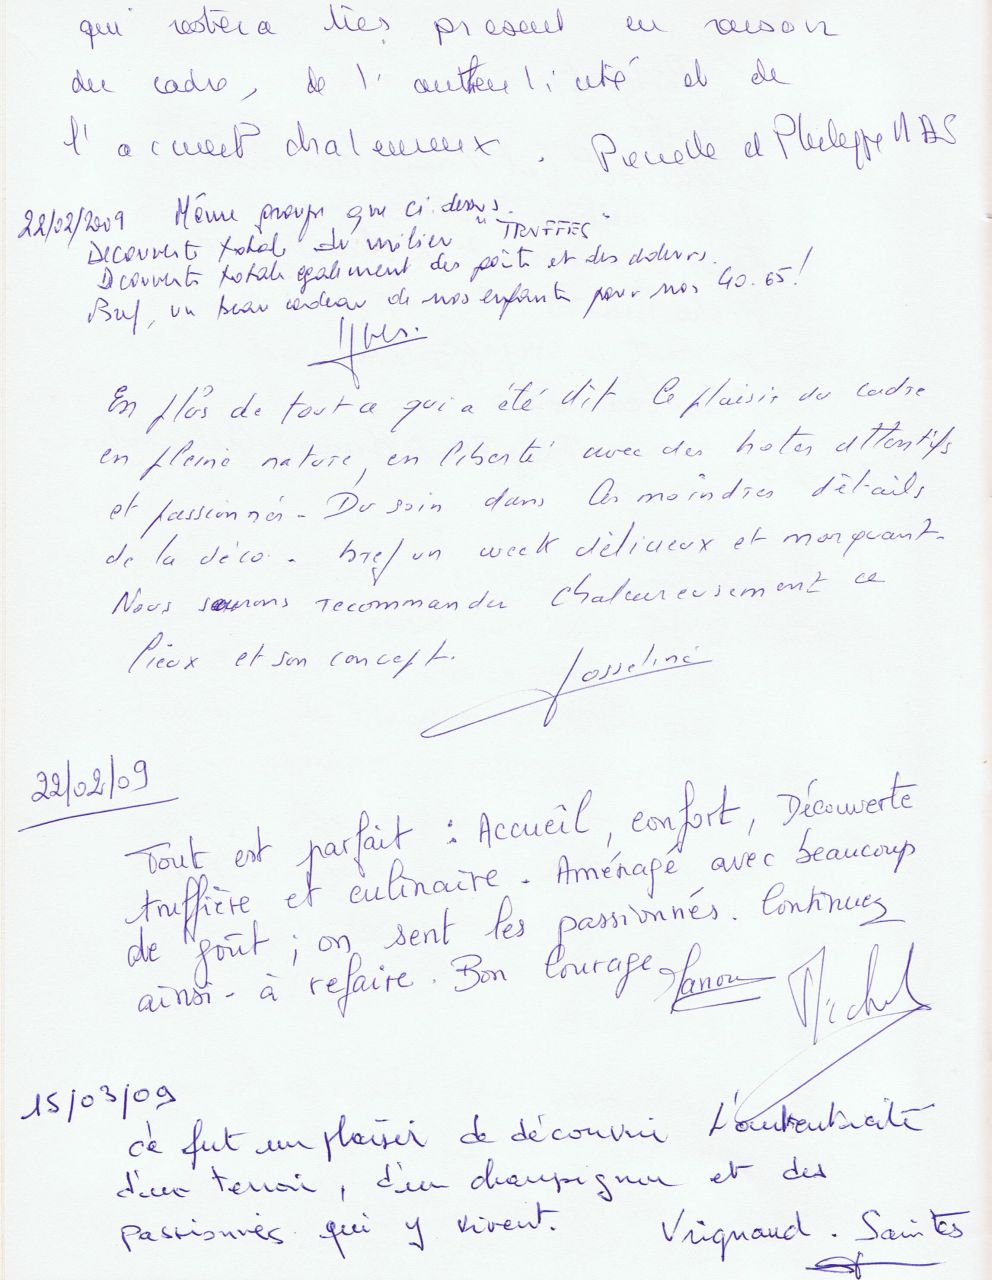 qui restera très présent en raison
du cadre, de l'authenticité et de
l'accueil chaleureux. Pierrette et Philippe MAS
22/02/2009 Même groupe que ci-dessus.
Découverte totale du milieu "TRUFFES"
Découverte totale également des goûts et des odeurs.
Bref, un beau cadeau de nos enfants pour nos 40.65!
Yves.
En plus de tout ce qui a été dit le plaisir du cadre
en pleine nature, en liberté avec des hotes attentifs
et passionnés - Du soin dans les moindres détails
de la déco. bref un week délicieux et marquant.
Nous saurons recommander chaleureusement ce
lieux et son concept.
Josseline
22/02/09
Tout est parfait : Accueil, confort, Découverte
truffière et culinaire. Aménagé avec beaucoup
de goût ; on sent les passionnés. Continuez
ainsi - à refaire. Bon Courage Manou Michel
15/03/09
ce fut un plaisir de découvrir L'authenticité
d'un terroir, d'un champignon et des
passionnés qui y vivent. Vrignaud. Saintes